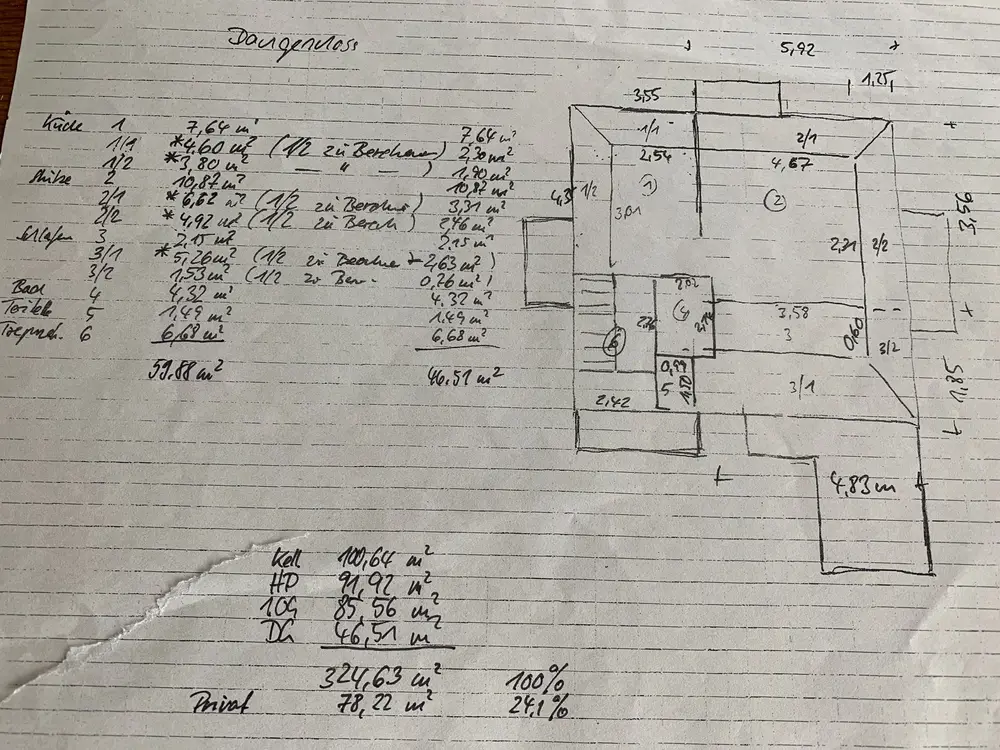 Dachgeschoss
Küche 1 7,64 m² 7,64 m²
1/1 *4,60 m² (1/2 zu Berechnen) 2,30 m²
1/2 *3,80 m² ( — " — ) 1,90 m²
2 10,87 m² 10,87 m²
2/1 *6,62 m² (1/2 zu Berechnen) 3,31 m²
2/2 *4,92 m² (1/2 zu Berech) 2,46 m²
Schlafen 3 2,15 m² 2,15 m²
3/1 *5,26 m² (1/2 zu 2,63 m²)
3/2 1,53 m² (1/2 zu Ber. 0,76 m²)
Bad 4 4,32 m² 4,32 m²
Toilette 5 1,49 m² 1,49 m²
6 6,68 m² 6,68 m²
59,88 m² 46,51 m²
5,92
1,25
3,55
1/1
2/1
2,54
4,67
1
2
1/2
3,01
2,21
2/2
3,56
2,02
4
3,58
3
0,60
3/2
6
0,99
5
1,50
3/1
1,85
2,42
4,83 m
Kell 100,64 m²
HP 91,92 m²
1OG 85,56 m²
DG 46,51 m²
324,63 m² 100%
Privat 78,22 m² 24,1%